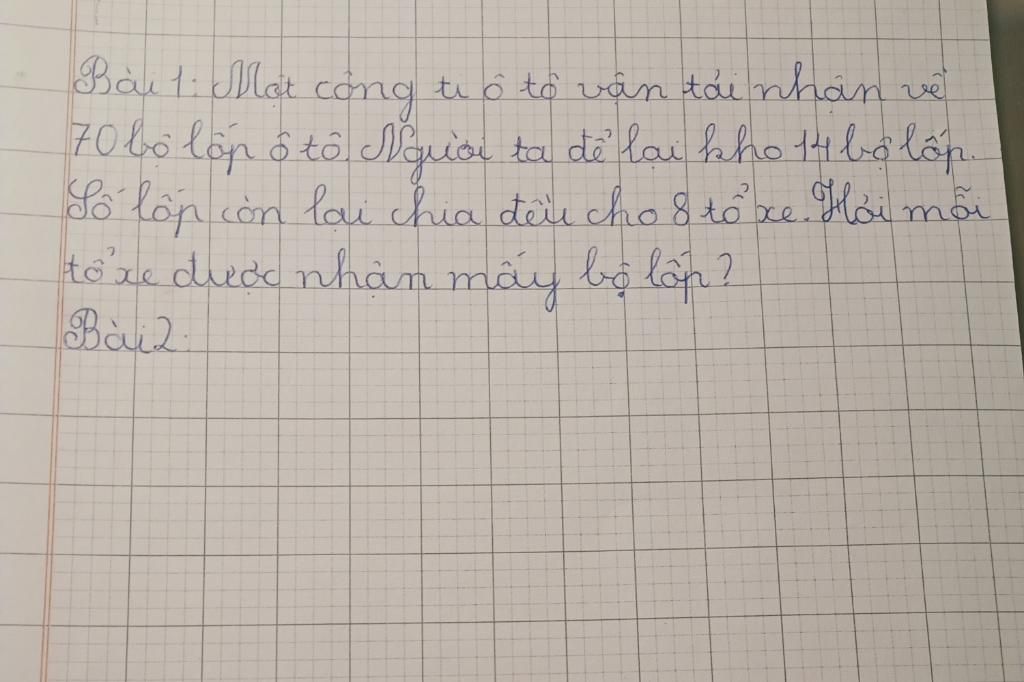 Bài 1: Một công ti ô tô vận tải nhận về
70 bộ lốp ô tô. Người ta để lại kho 14 bộ lốp.
Số lốp còn lại chia đều cho 8 tổ xe. Hỏi mỗi
tổ xe được nhận mấy bộ lốp?
Bài 2: